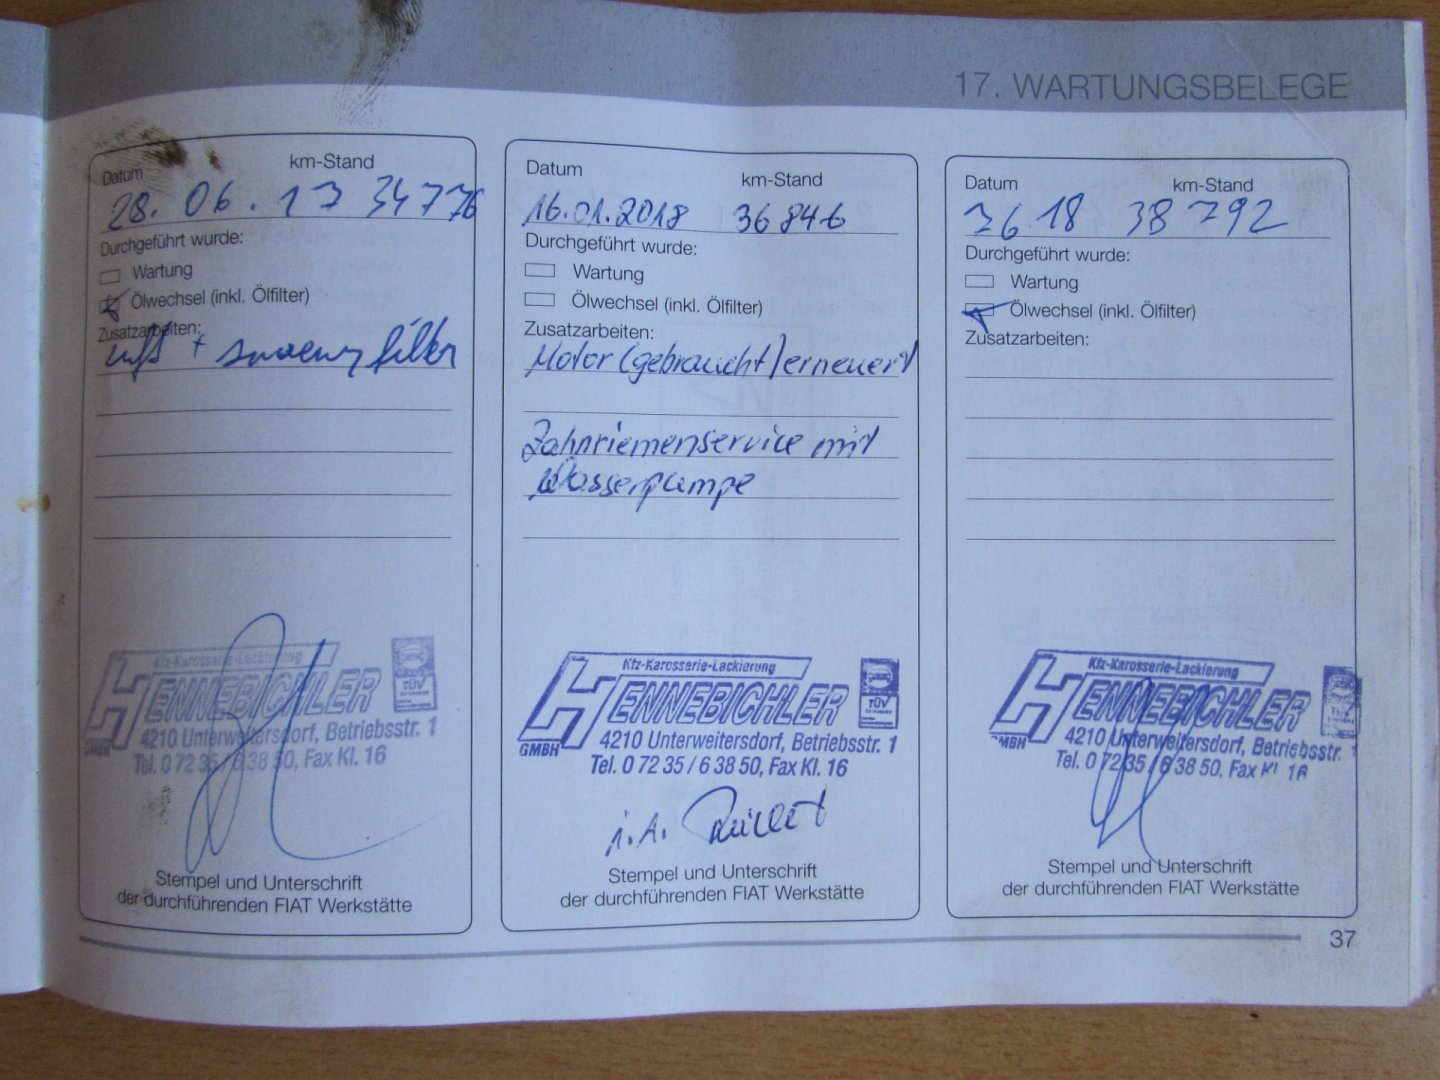 17. WARTUNGSBELEGE
Datum km-Stand
28. 06. 17 34776
Durchgeführt wurde:
Wartung
Ölwechsel (inkl. Ölfilter)
Zusatzarbeiten:
Luft + filter
Kfz-Karosserie-Lackierung
HENNEBICHLER
GMBH
TÜV
4210 Unterweitersdorf, Betriebsstr. 1
Tel. 0 72 35 / 6 38 50, Fax Kl. 16
Stempel und Unterschrift
der durchführenden FIAT Werkstätte
Datum km-Stand
16.01.2018 36846
Durchgeführt wurde:
Wartung
Ölwechsel (inkl. Ölfilter)
Zusatzarbeiten:
Motor (gebraucht) erneuert
Zahnriemenservice mit
Wasserpumpe
Kfz-Karosserie-Lackierung
HENNEBICHLER
GMBH
TÜV
4210 Unterweitersdorf, Betriebsstr. 1
Tel. 0 72 35 / 6 38 50, Fax Kl. 16
i.A.
Stempel und Unterschrift
der durchführenden FIAT Werkstätte
Datum km-Stand
7618 38792
Durchgeführt wurde:
Wartung
Ölwechsel (inkl. Ölfilter)
Zusatzarbeiten:
Kfz-Karosserie-Lackierung
HENNEBICHLER
GMBH
4210 Unterweitersdorf, Betriebsstr. 1
Tel. 0 72 35 / 6 38 50, Fax Kl. 16
Stempel und Unterschrift
der durchführenden FIAT Werkstätte
37